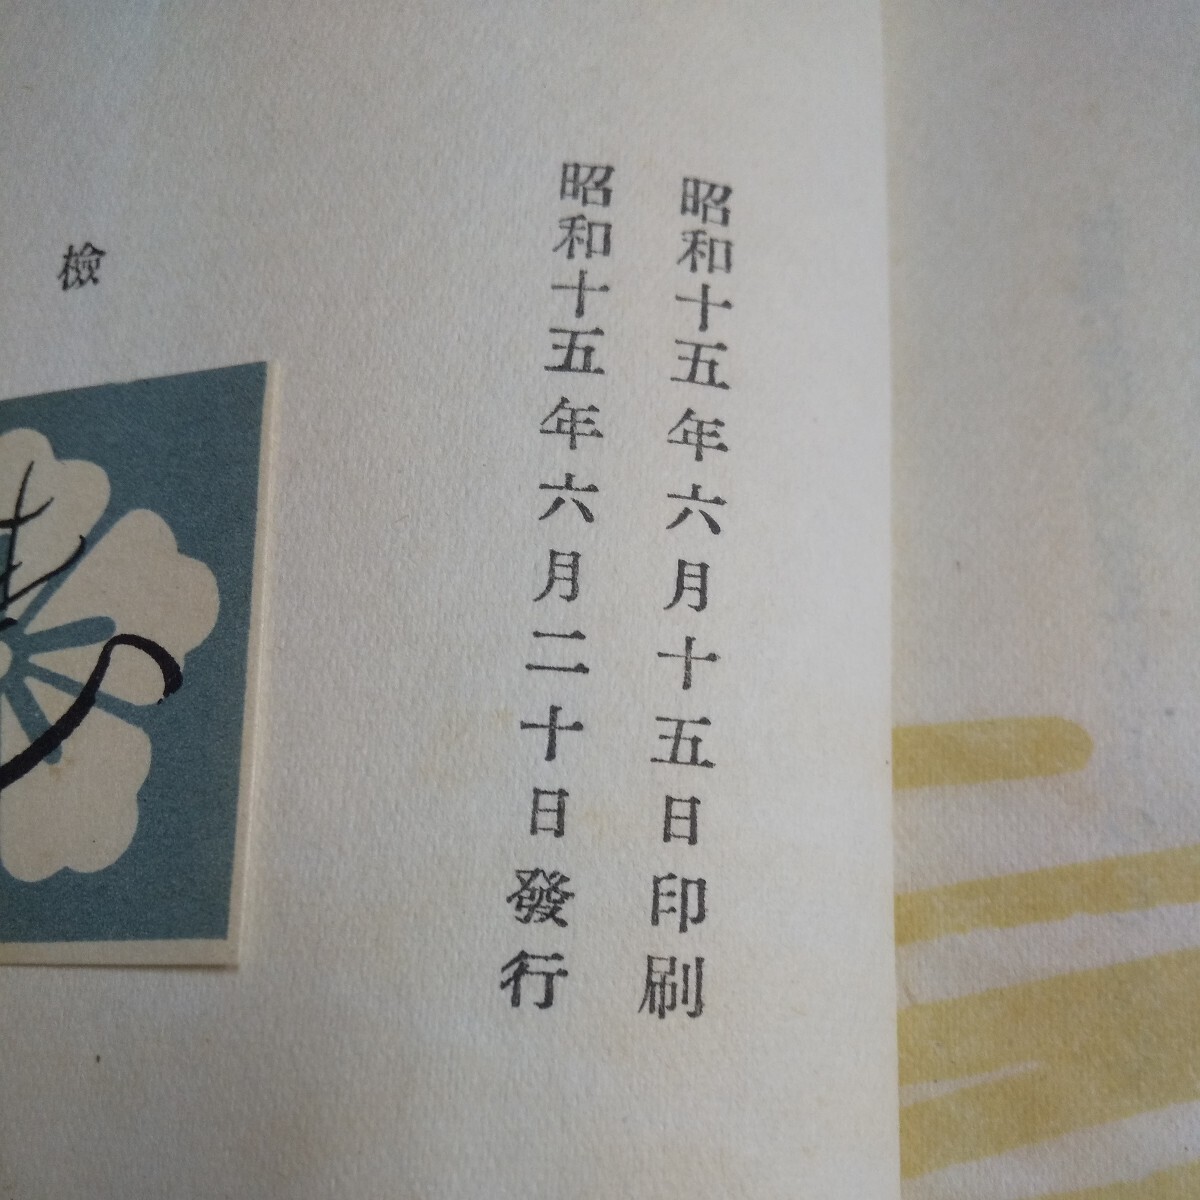 昭和十五年六月十五日印刷
昭和十五年六月二十日發行
檢